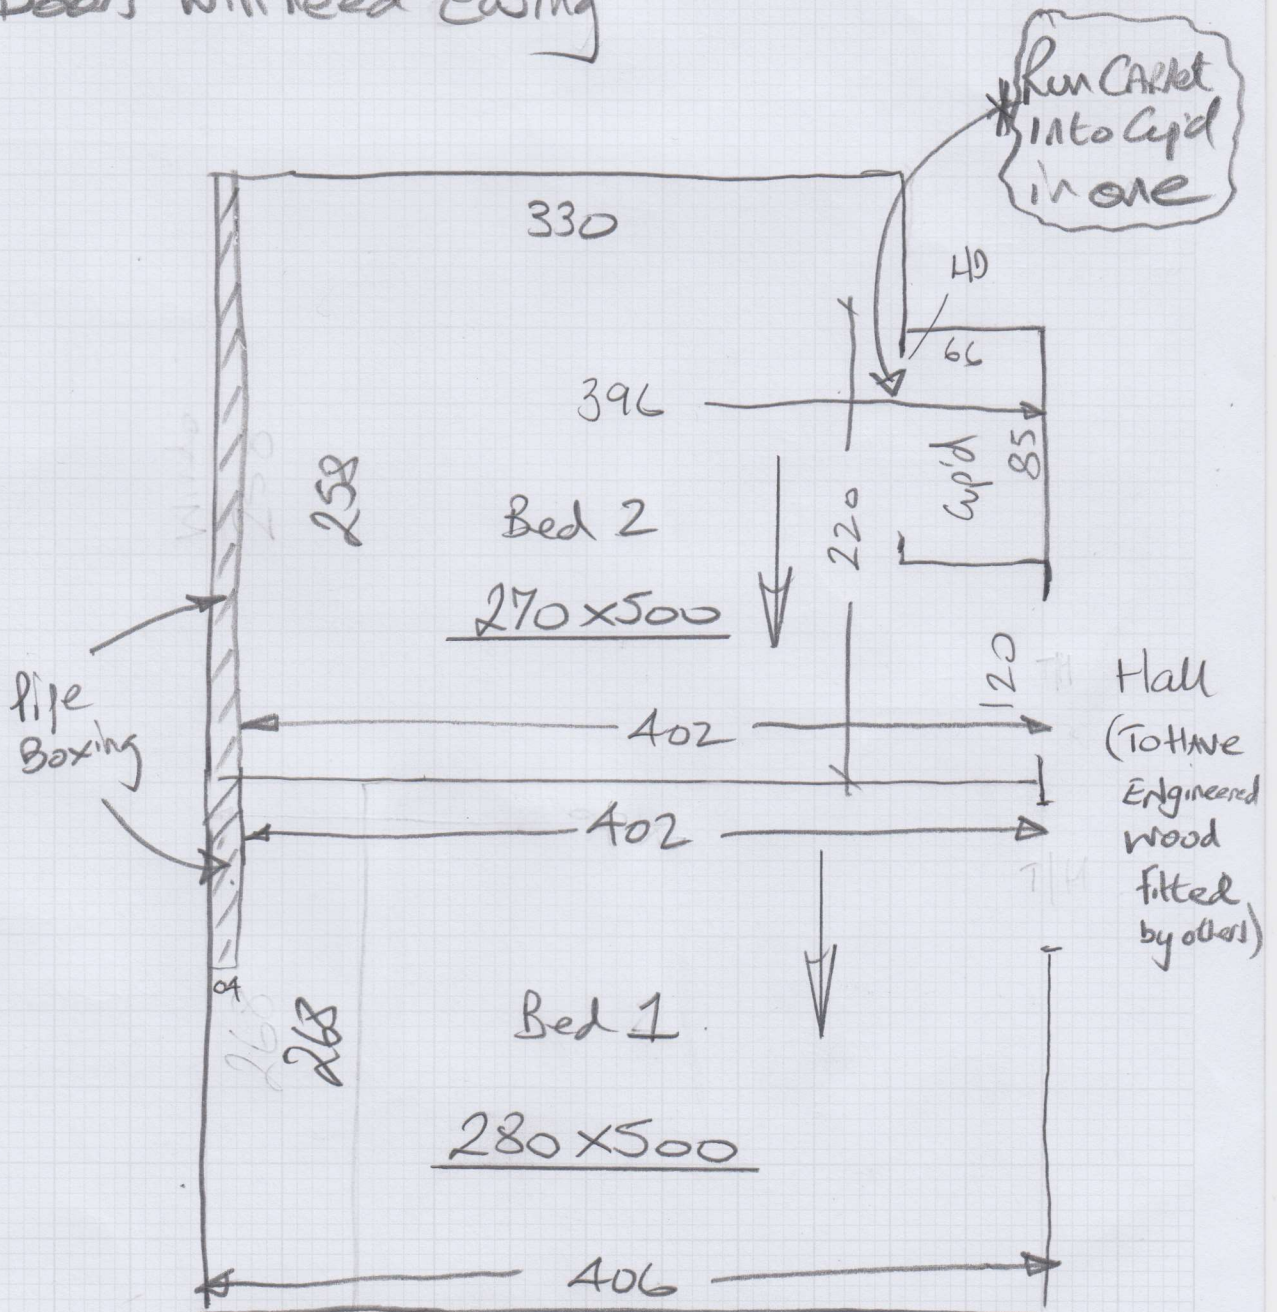 Doors will need Easing
Run CARPet
Into Cup'd
in one
330
40
66
396
Cup'd
85
258
Bed 2
220
270 x 500
120
Pipe
Boxing
Hall
(To HAVE
Engineered
wood
fitted
by others)
402
402
T/H
04
268
268
Bed 1
280 x 500
406